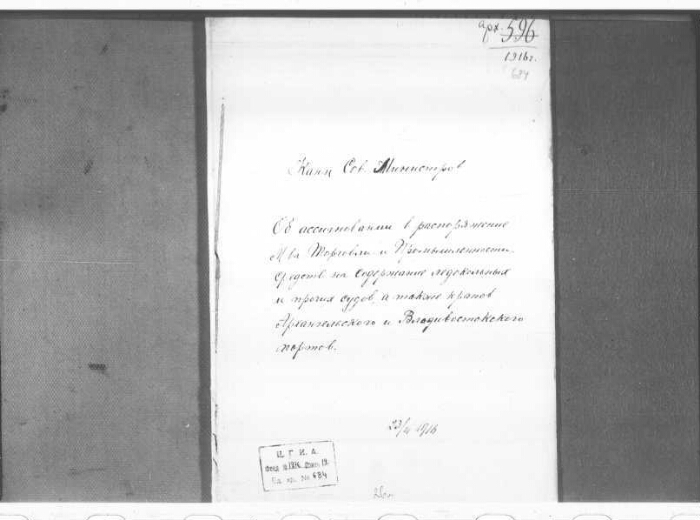 арх. 596
1916 г.
684
Канц Сов. Министров
Об ассигновании в распоряжение
М ва Торговли и Промышленности
средств на содержание ледокольных
и прочих судов, а также кранов
Архангельского и Владивостокского
портов.
1916
Ц. Г. И. А.
Фонд № 1276 опись 12
Ед. хр. № 684